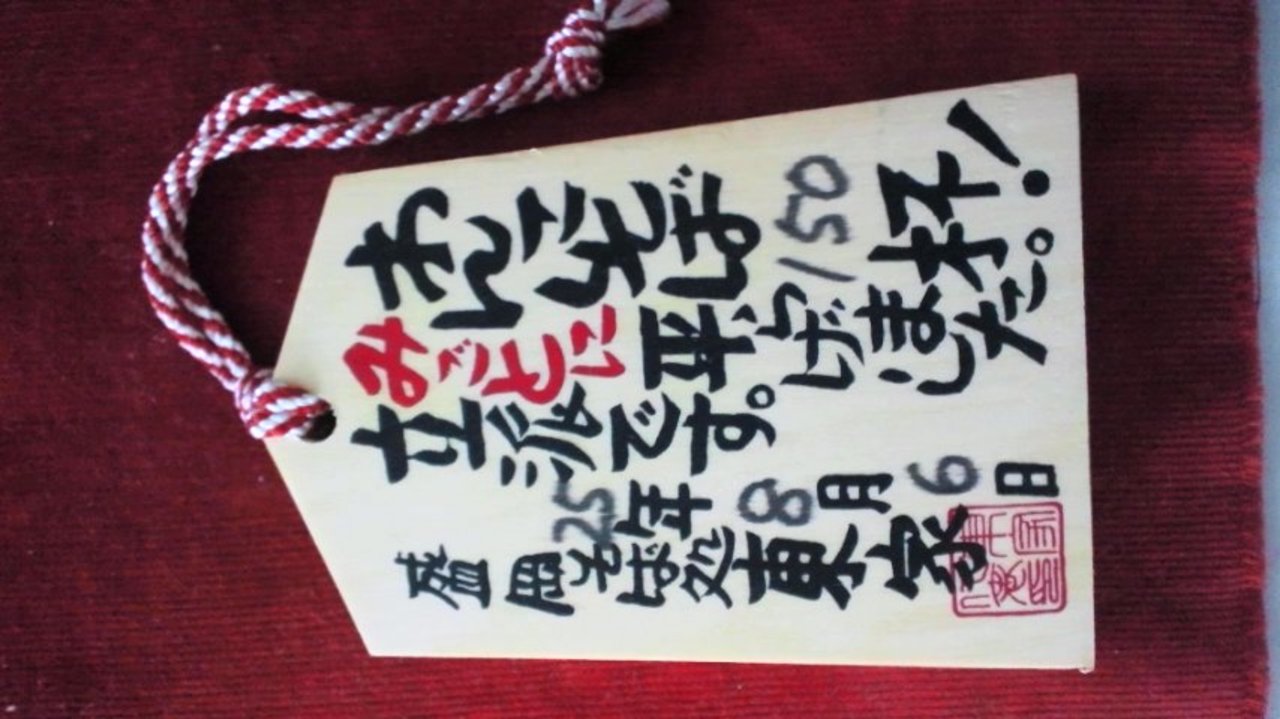 わんこそば150杯!
みごとに平らげました。
立派です。
25年8月6日
盛岡そば処東家